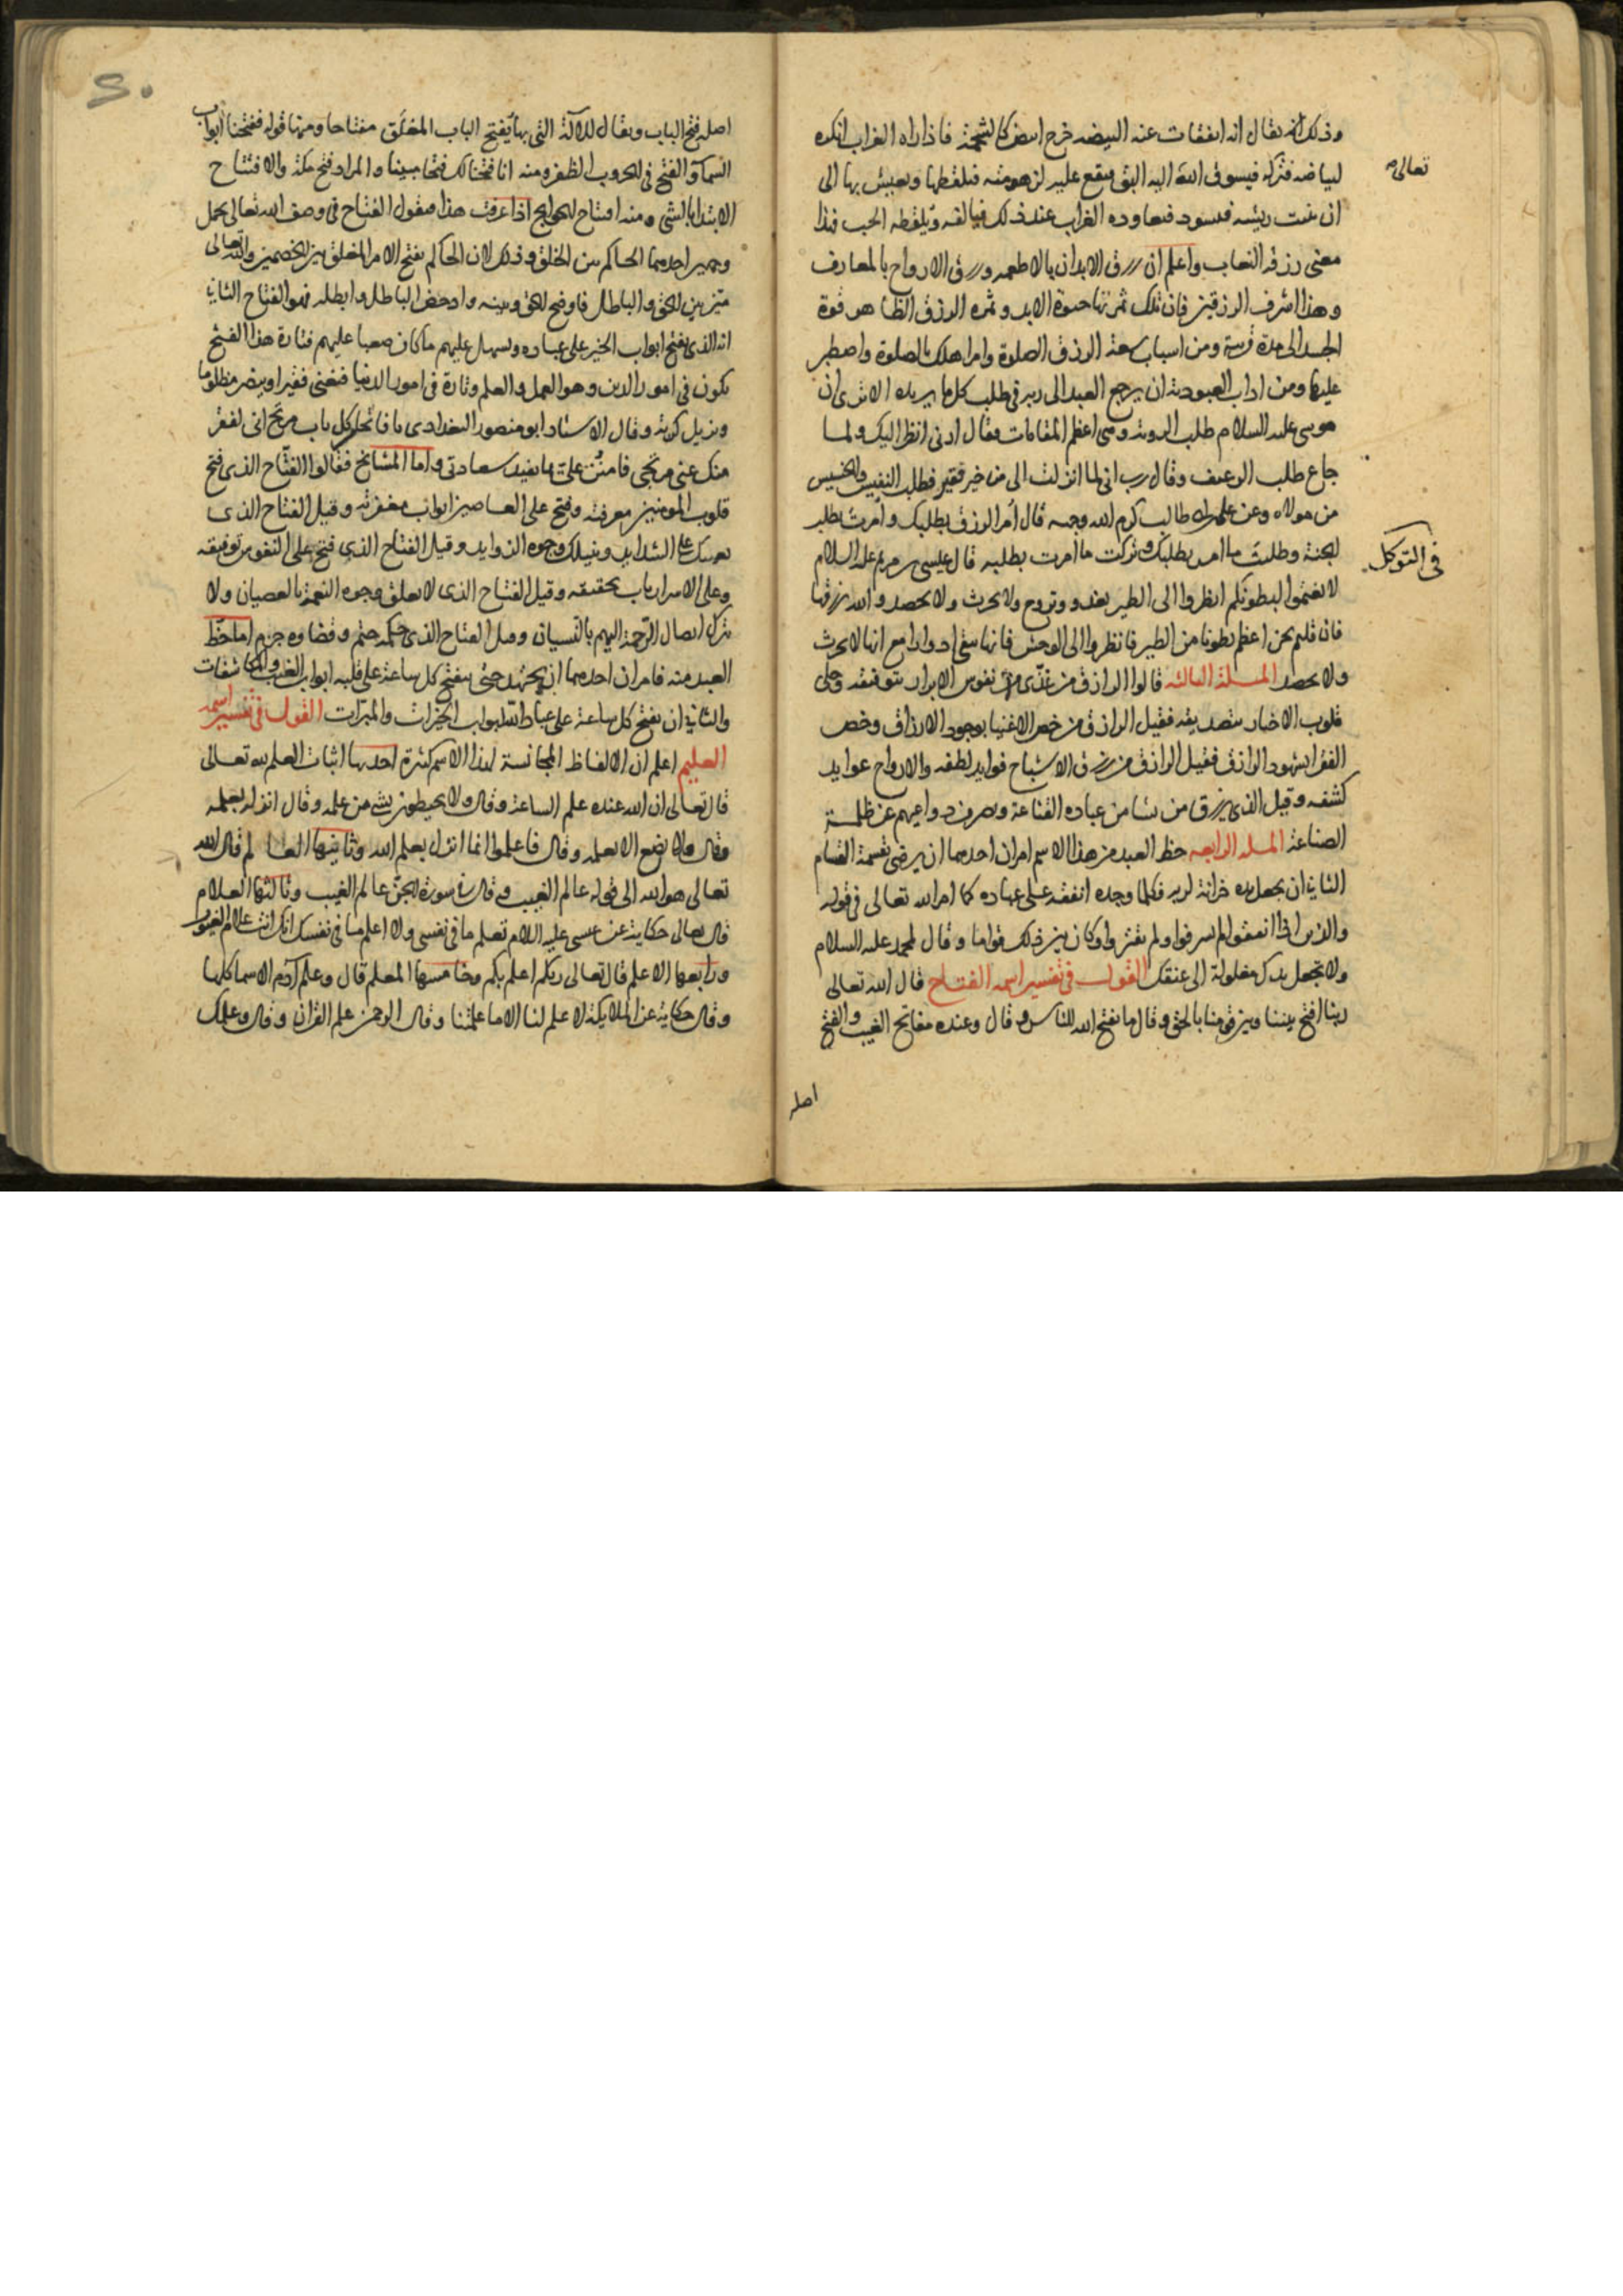 وذلك انه يقال انه اذا تفقات عنه البيضه خرج ابيض كالشحمة فاذا راه الغراب انكره
لبياضه فتركه فيسوق الله اليه البق فيقع عليه لزهومته فيلتقطها ويعيش بها الى
تعالى
ان ينبت ريشه فيسود فيعاوده الغراب عند ذلك فيالفه ويلقطه الحب فهذا
معنى رزقه النعاب واعلم ان رزق الابدان بالاطعمه ورزق الارواح بالمعارف
وهذا اشرف الرزقين فان تلك ثمرتها حيوة الابد وثمره الرزق الظاهر قوة
الجسد الى مدة قريبة ومن اسباب سعة الرزق الصلوة وامر اهلك بالصلوة واصطبر
عليها ومن اداب العبودية ان يرجع العبد الى ربه في طلب كل ما يريده الا ترى ان
موسى عليه السلام طلب الروية وهى اعظم المقامات فقال ارنى انظر اليك ولما
جاع طلب الرغيف وقال رب انى لما انزلت الى من خير فقير فطلب النفيس والخسيس
من مولاه وعن على بن ابى طالب كرم الله وجهه قال امر الرزق بطلبك وامرت بطلب
الجنة وطلبت ما امر بطلبك وتركت ما امرت بطلبه قال عيسى بن مريم عليه السلام
في التوكل
لا تغتموا لبطونكم انظروا الى الطير تغدو وتروح ولا تحرث ولا تحصد والله يرزقها
فان قلتم نحن اعظم بطونا من الطير فانظروا الى الوحش فانها تبقى ادوارا مع انها لا تحرث
ولا تحصد المسئلة الثالثه قالوا الرازق من غذى نفوس الابرار بتوفيقه وجلى
قلوب الاخيار بتصديقه فقيل الرازق من خص الاغنيا بوجود الارزاق وخص
الفقرا بشهود الرازق فقيل الرازق من رزق الاشباح فوايد لطفه والارواح عوايد
كشفه وقيل الذى يرزق من يشا من عباده القناعة ويصرف دواعيهم عن ظلمة
الصناعة المسله الرابعه حظ العبد من هذا الاسم امران احدهما ان يرضى بقسمة القسام
الثانية ان يجعل يده خزانة لربه فكلما وجده انفقه على عباده كما امر الله تعالى في قوله
والذين اذا انفقوا لم يسرفوا ولم يقتروا وكان بين ذلك قواما وقال لمحمد عليه السلام
ولا تجعل يدك مغلولة الى عنقك القول في تفسير اسمه الفتاح قال الله تعالى
ربنا افتح بيننا وبين قومنا بالحق وقال ما يفتح الله للناس وقال وعنده مفاتح الغيب والفتح
اصله
اصله فتح الباب ويقال للآلة التى بها يفتح الباب المغلق مفتاحا ومنها قوله ففتحنا ابواب
السما والفتح في الحروب الظفر ومنه انا فتحنا لك فتحا مبينا والمراد فتح مكة والافتتاح
الابتدا بالشى ومنه افتتاح الحوايج اذا عرفت هذا فنقول الفتاح في وصف الله تعالى يحمل
وجهين احدهما الحاكم بين الخلق وذلك لان الحاكم يفتح الامر المغلق بين الخصمين والله تعالى
ميز بين الحق والباطل فاوضح الحق وبينه وادحض الباطل وابطله فهو الفتاح الثانية
انه الذى يفتح ابواب الخير على عباده ويسهل عليهم ما كان صعبا عليهم فتارة هذا الفتح
يكون في امور الدين وهو العمل والعلم وتارة في امور الدنيا فيغنى فقيرا وينصر مظلوما
ويزيل كربة وقال الاستاد ابو منصور البغدادى يا فاتحا كل باب مرتج انى لفقر
منك عنى مرتجى فامنن على بما يفيد سعادتى واما المشايخ فقالوا الفتاح الذى فتح
قلوب المومنين بمعرفته وفتح على العاصين ابواب مغفرته وقيل الفتاح الذى
يعينك على الشدايد وينيلك وجوه الزوايد وقيل الفتاح الذى فتح على النفوس توفيقه
وعلى الاسرار باب تحقيقه وقيل الفتاح الذى لا يغلق وجوه النعمة بالعصيان ولا
يترك ايصال الرحمة اليهم بالنسيان وقيل الفتاح الذى حكمه حتم وقضاوه جزم اما حظ
العبد منه فامران احدهما ان يجتهد حتى ينفتح كل ساعة على قلبه ابواب الغيب والمكاشفات
والثانية ان يفتح كل ساعة على عباد الله ابواب الخيرات والمبرات القول في تفسير اسمه
العليم اعلم ان الالفاظ المجانسة لهذا الاسم كثيرة احدها اثبات العلم لله تعالى
قال تعالى ان الله عنده علم الساعة وقال ولا يحيطون بشى من علمه وقال انزله بعلمه
وقال ولا تضع الا بعلمه وقال فاعلموا انما انزل بعلم الله وثانيها العالم قال الله
تعالى هو الله الى قوله عالم الغيب وقال في سورة الجن عالم الغيب وثالثها العلام
قال تعالى حكاية عن عيسى عليه السلام تعلم ما في نفسى ولا اعلم ما في نفسك انك انت علام الغيوب
ورابعها الاعلم قال تعالى ربكم اعلم بكم وخامسها المعلم قال وعلم آدم الاسما كلها
وقال حكاية عن الملايكة لا علم لنا الا ما علمتنا وقال الرحمن علم القران وقال وعلمك